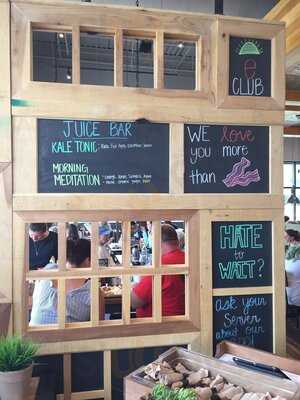 e
CLUB
JUICE BAR
KALE TONIC
MORNING
MEDITATION
WE love
you more
than
HATE
to
WAIT?
ASK YOUR
SERVER
about our